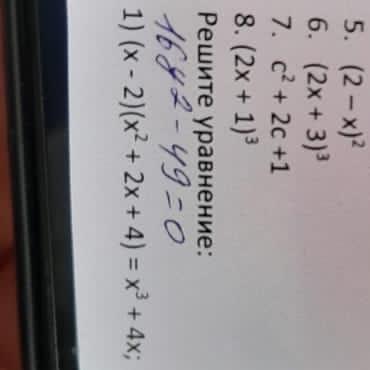 5. (2 – x)²
6. (2x + 3)³
7. c² + 2c +1
8. (2x + 1)³
Решите уравнение:
16y2 - 49 = 0
1) (x - 2)(x² + 2x + 4) = x³ + 4x;